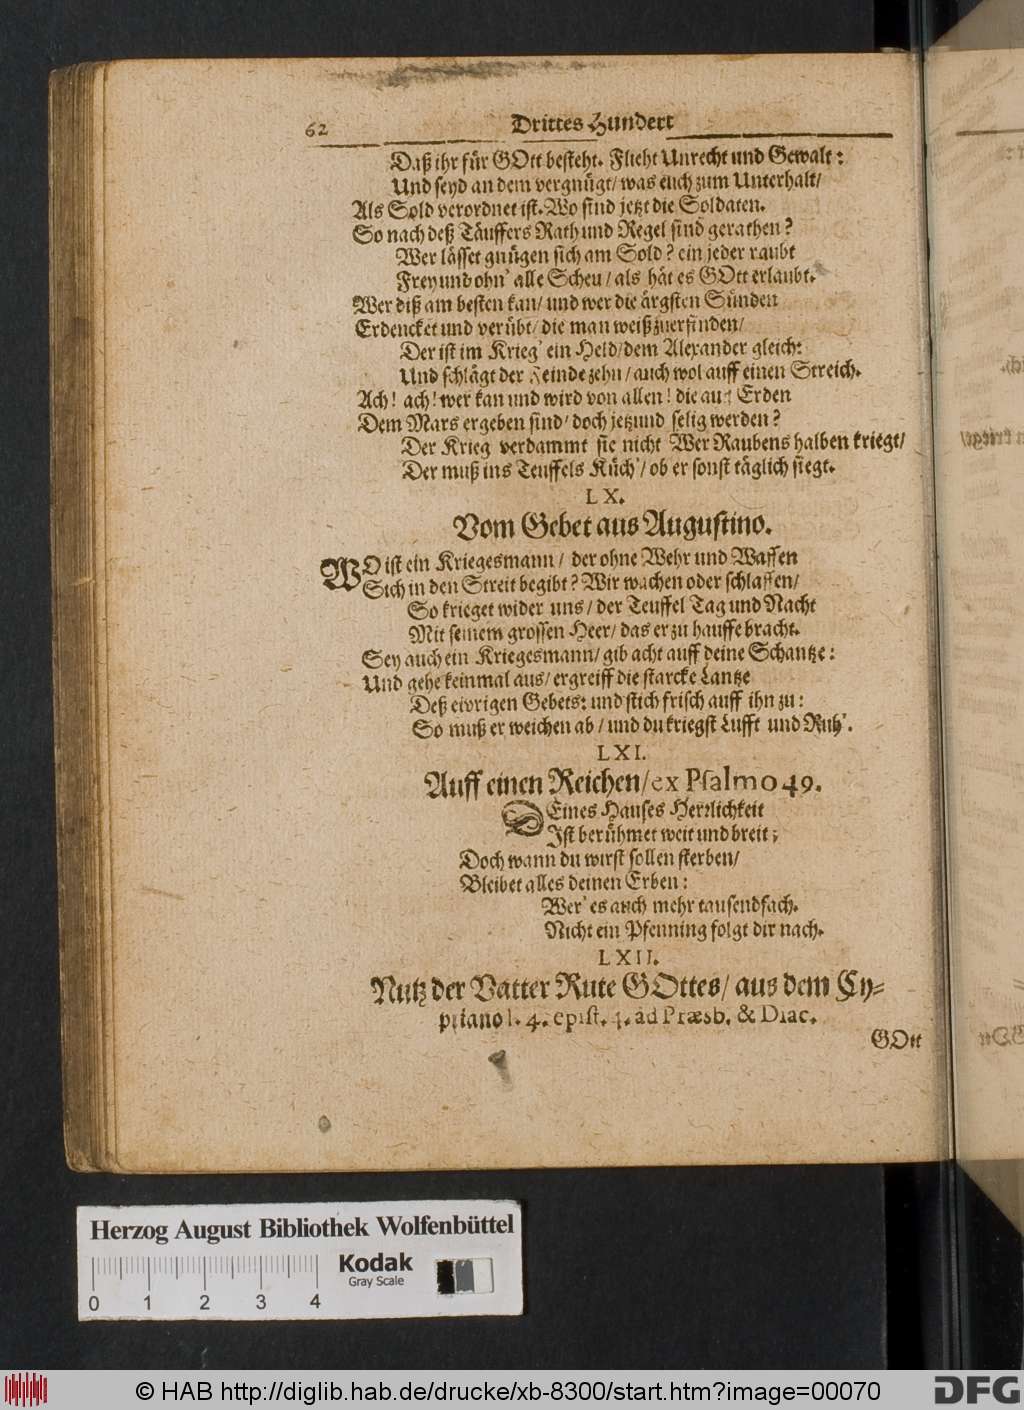 62 Drittes Hundert
Daß ihr für GOtt besteht. Flieht Unrecht und Gewalt:
Und seyd an dem vergnügt/ was euch zum Unterhalt/
Als Sold verordnet ist. Wo sind jetzt die Soldaten.
So nach deß Täuffers Rath und Regel sind gerathen?
Wer lässet gnügen sich am Sold? ein jeder raubt
Frey und ohn' alle Scheu/ als hät es GOtt erlaubt.
Wer diß am besten kan/ und wer die ärgsten Sünden
Erdencket und verübt/ die man weiß zuerfinden/
Der ist im Krieg' ein Held/ dem Alexander gleich:
Und schlägt der Feinde zehn/ auch wol auff einen Streich.
Ach! ach! wer kan und wird von allen! die auf Erden
Dem Mars ergeben sind/ doch jetzund selig werden?
Der Krieg verdammt sie nicht Wer Raubens halben kriegt/
Der muß ins Teuffels Küch'/ ob er sonst täglich siegt.
LX.
Vom Gebet aus Augustino.
WO ist ein Kriegesmann/ der ohne Wehr und Waffen
Sich in den Streit begibt? Wir wachen oder schlaffen/
So krieget wider uns/ der Teuffel Tag und Nacht
Mit seinem grossen Heer/ das er zu hauffe bracht.
Sey auch ein Kriegesmann/ gib acht auff deine Schantze:
Und gehe keinmal aus/ ergreiff die starcke Lantze
Deß eivrigen Gebets: und stich frisch auff ihn zu:
So muß er weichen ab/ und du kriegst Lufft und Ruh'.
LXI.
Auff einen Reichen/ ex Psalmo 49.
DEines Hauses Herrlichkeit
Ist berühmet weit und breit;
Doch wann du wirst sollen sterben/
Bleibet alles deinen Erben:
Wer' es auch mehr tausendfach.
Nicht ein Pfenning folgt dir nach.
LXII.
Nutz der Vatter Rute GOttes/ aus dem Cy-
priano l. 4. epist. 4. ad Præsb. & Diac.
GOtt
Herzog August Bibliothek Wolfenbüttel
Kodak
Gray Scale
0 1 2 3 4
© HAB http://diglib.hab.de/drucke/xb-8300/start.htm?image=00070
DFG